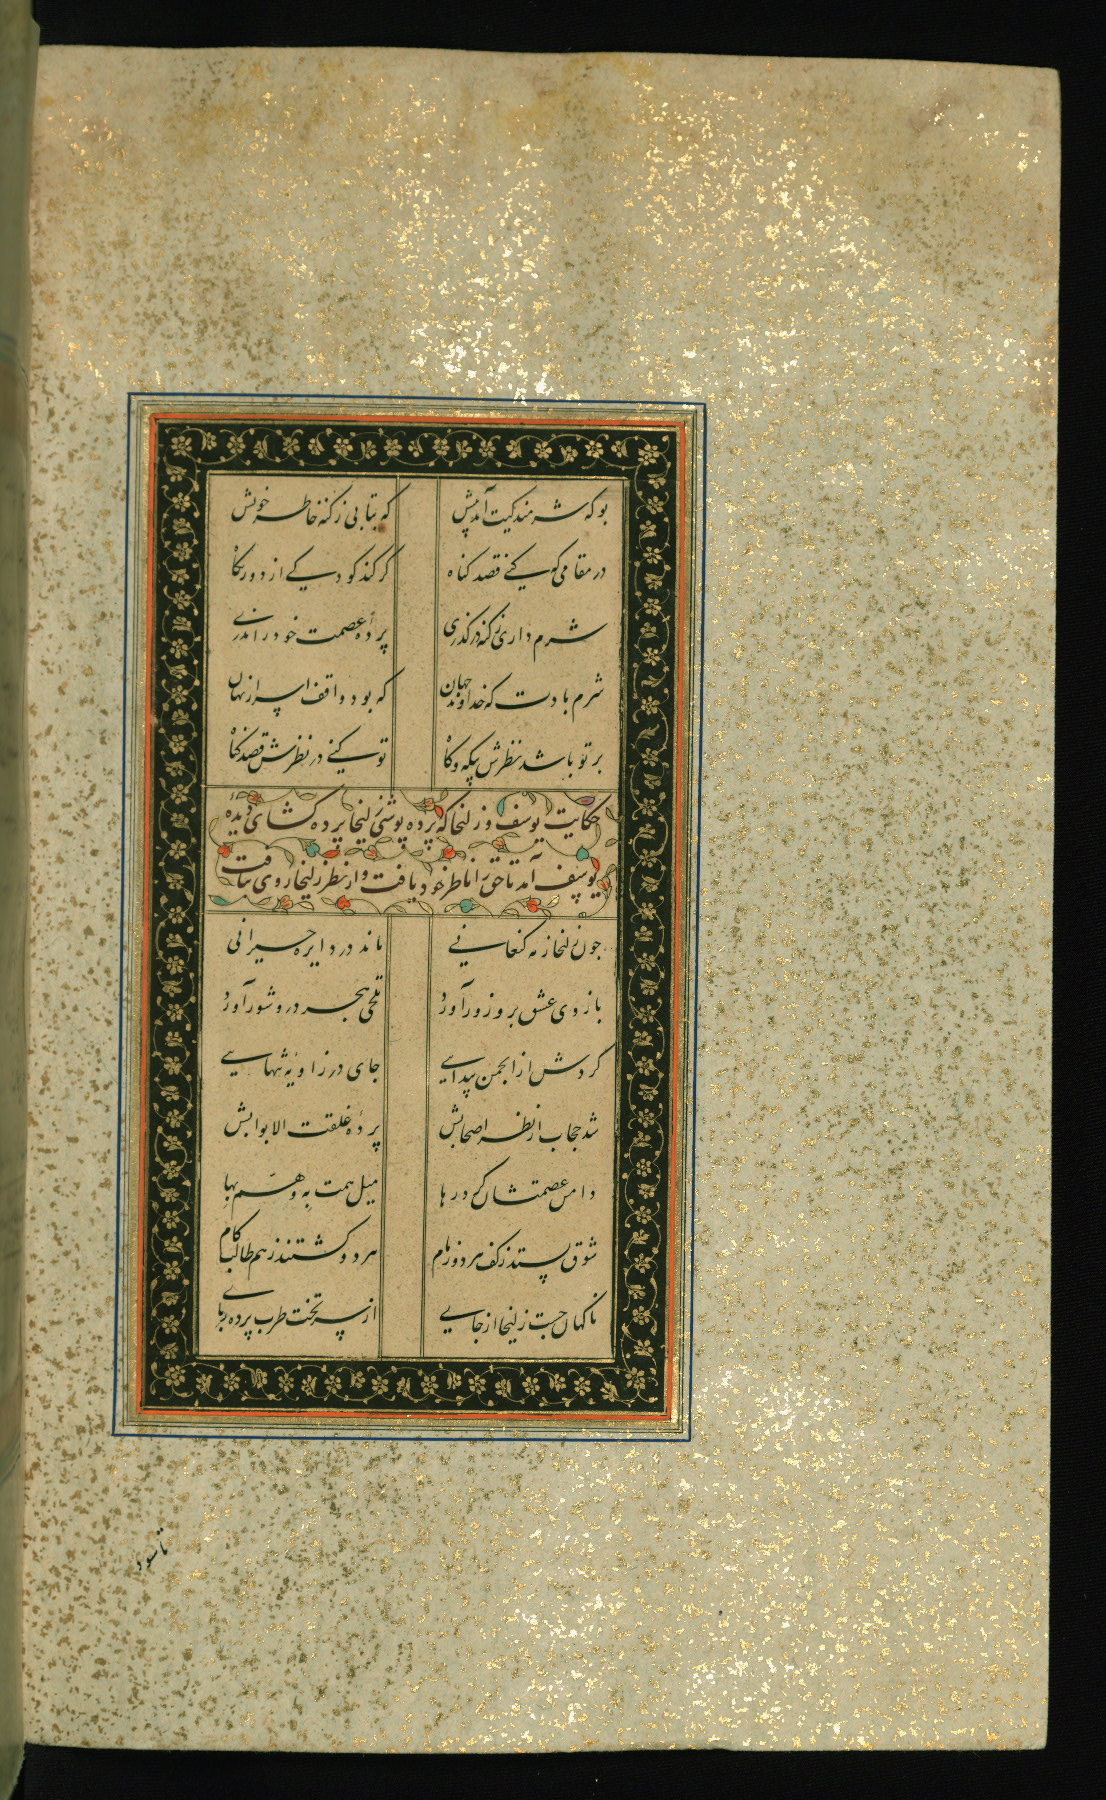 بو که شرمندگیت آمد پیش که بتابی ز گنه خاطر خویش
در مقامی که کنی قصد گناه گر کند کودکی از دور نگاه
شرم داری ز گنه درگذری پرده عصمت خود را ندری
شرم بادت که خداوند جهان که بود واقف اسرار نهان
بر تو باشد نظرش بیگه و گاه تو کنی در نظرش قصد گناه
حکایت یوسف و زلیخا که پرده پوشی زلیخا پرده گشای دیده
یوسف آمد تا حق را ناظر خود یافت و از نظر زلیخا روی بتافت
چون زلیخا ز مه کنعانی ماند در دایره حیرانی
بازوی عشق برو زور آورد تلخی هجر درو شور آورد
کردش از انجمن پیدایی جای در زاویه تنهایی
شد حجاب از نظر اصحابش پرده غلقت الابوابش
دامن عصمتشان در ها میل همت به و هم بها
شوق بستد ز کف هر دو زمام هر دو گشتند ز هم طالب کام
ناگهان جست زلیخا از جای از سر تخت طرب پرده ربای
تا شود